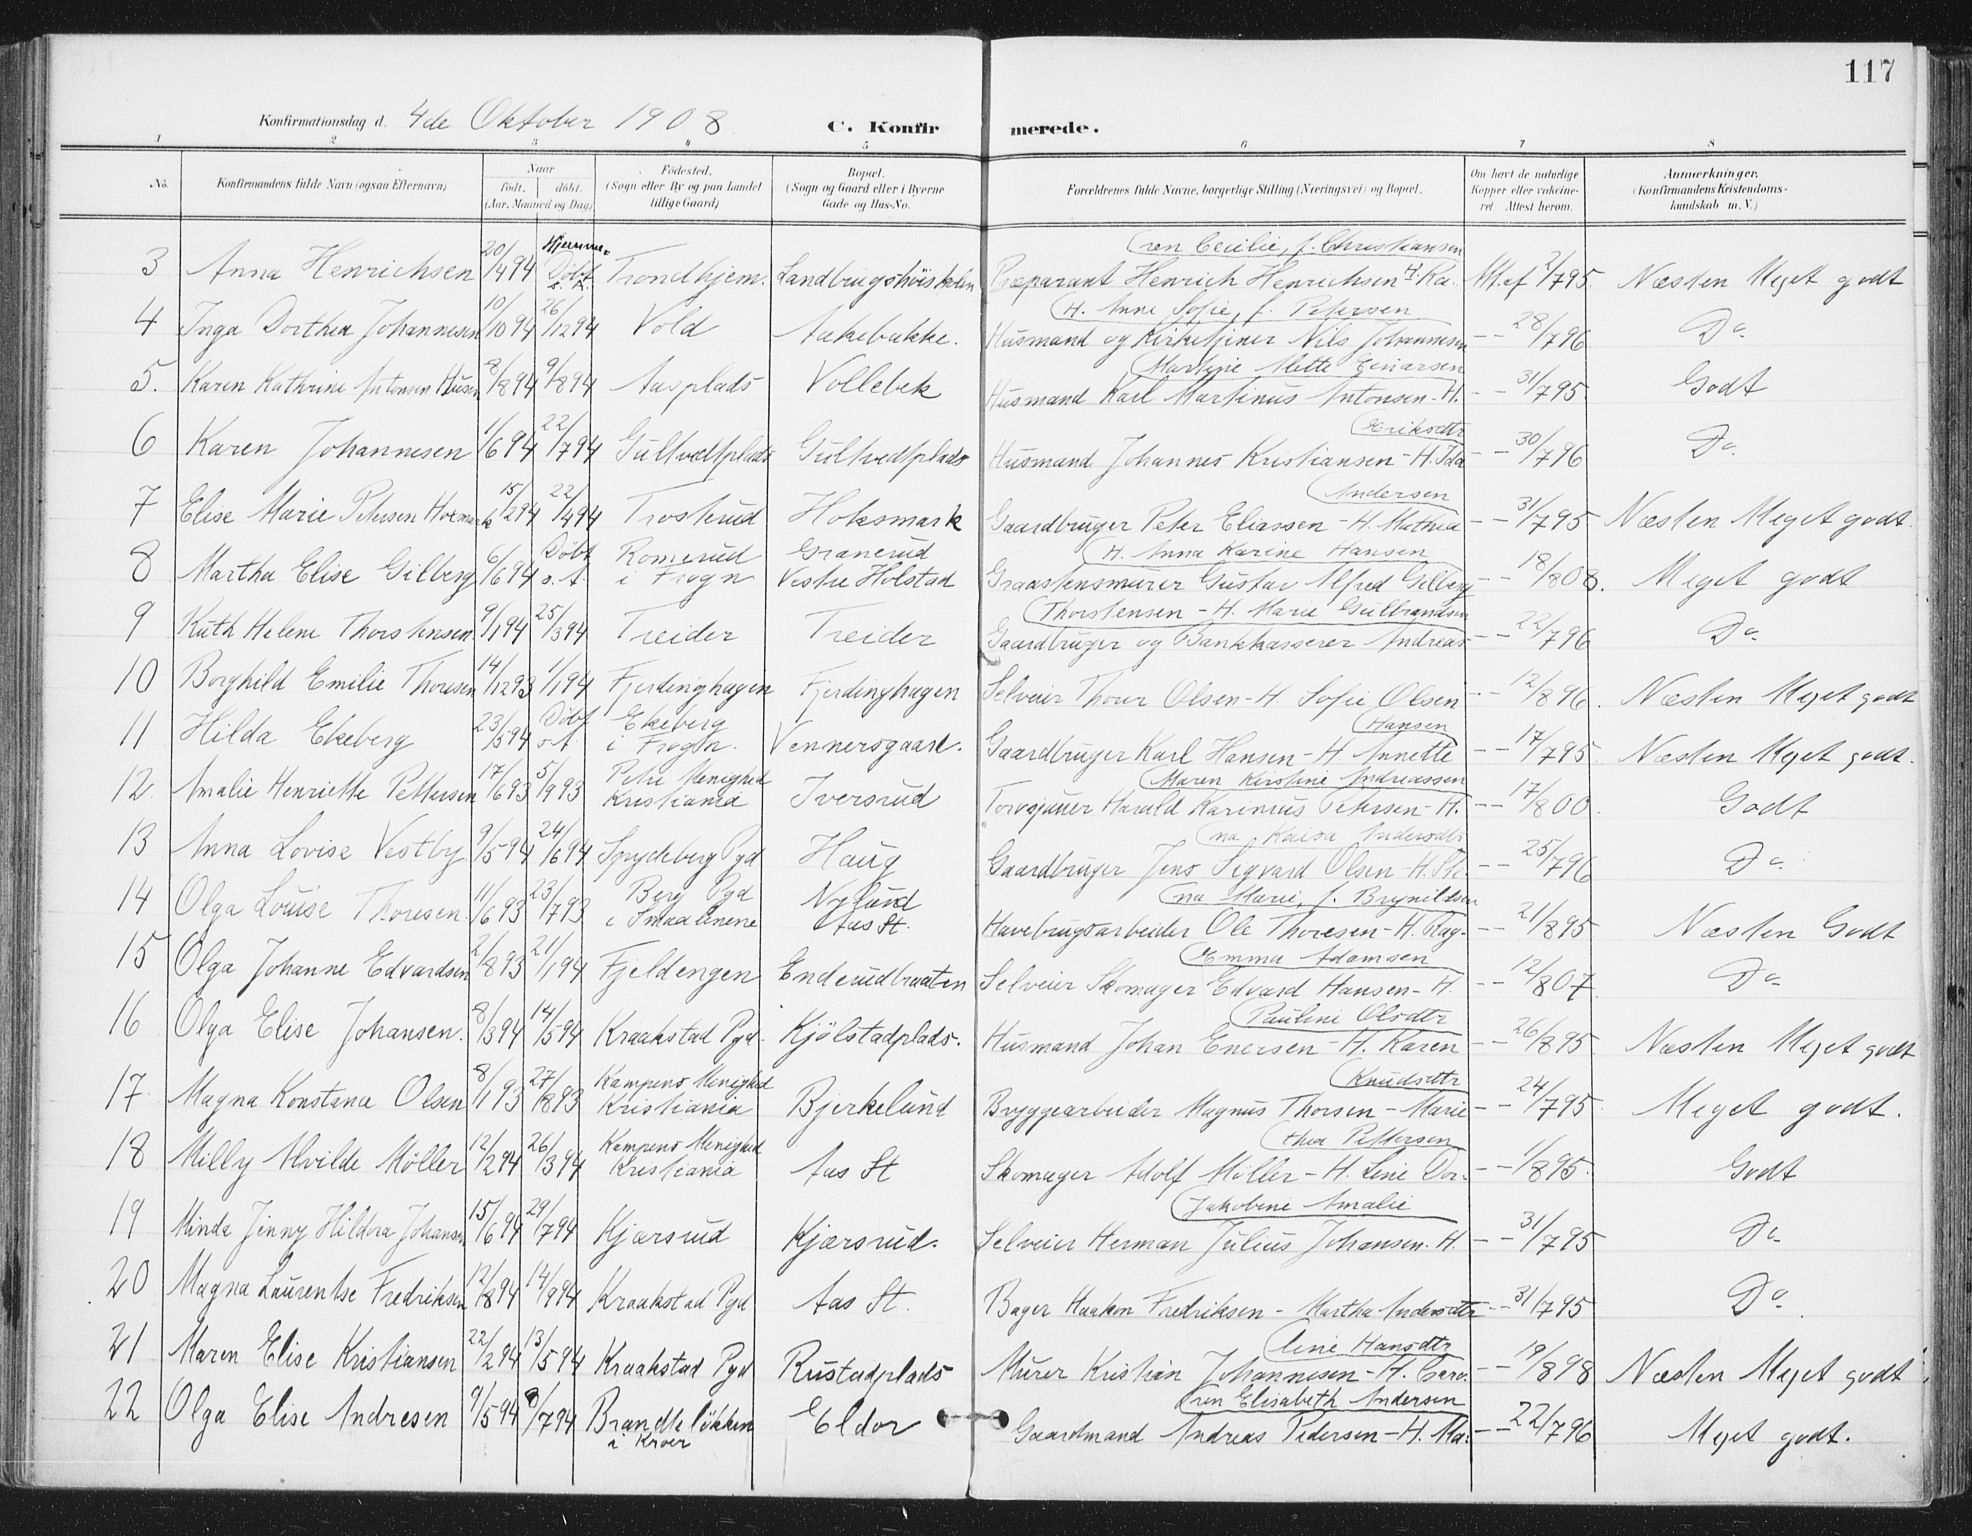 117
Konfirmationsdag d. 4de Oktober 1908
C. Konfirmerede.
1 2 3 4 5 6 7 8
No. Konfirmandens fulde Navn (ogsaa Efternavn) Naar født. døbt. (Aar, Maaned og Dag) Fødested. (Sogn eller By og paa Landet tillige Gaard) Bopæl. (Sogn og Gaard eller i Byerne Gade og Hus-No. Forældrenes fulde Navne, borgerlige Stilling (Næringsvei) og Bopæl. Om havt de naturlige Kopper eller vakcineret. Attest herom. Anmerkninger. (Konfirmandens Kristendomskundskab m. V.)
3 Anna Henrichsen 20/4 94 Hjemmedøbt Trondhjem. Landbrugshöiskolen Præparant Henrich Henrichsen H. Karen Cecilie, f. Christiansen Att. af 2/7 95. Næsten Meget godt
4 Inga Dorthea Johannesen 10/10 94 26/12 94 Vold Aakebakke. Husmand og Kirketjener Nils Johannesen H. Anne Sofie, f. Petersen -- 28/7 96 Do.
5. Karen Kathrine Antonsen Husen 8/8 94 9/8 94 Aasplads Vollebek Husmand Karl Martinus Antonsen - H. Martine Mette Einarsen -- 31/7 95 Godt
6 Karen Johannesen 1/6 94 22/7 94 Gultvedtplads Gultvedtplads Husmand Johannes Kristiansen - H. Ida Eriksdtr -- 30/7 96 Do.
7 Elise Marie Petersen 15/2 94 22/4 94 Trosterud Hoksmark Gaardbruger Peter Eliassen - H. Mathea Andersen -- 31/7 95 Næsten Meget godt.
8 Martha Elise Gilberg 6/6 94 Döbt o. A. Romerud i Frogn Granerud Vestre Holstad Graastensmurer Gustav Alfred Gilberg H. Anna Karine Hansen -- 18/8 08. Meget godt
9 Ruth Helene Thorstensen 9/1 94 25/3 94 Treider Treider Gaardbruger og Bankkasserer Andreas Thorstensen - H. Marie Gulbrandsen -- 22/7 96 Do.
10 Borghild Emilie Thoresen 14/12 93 1/1 94 Fjerdinghagen Fjerdinghagen Selveier Thour Olsen - H. Sofie Olsen -- 12/8 96. Næsten Meget godt
11 Hilda Ekeberg 23/5 94 Döbt o. A. Ekeberg i Frogn. Vennersgaard. Gaardbruger Karl Hansen - H. Annette Hansen -- 17/7 95 Næsten Meget godt.
12. Amalie Henriette Pettersen 17/6 93 5/9 93 Petri Menighed Kristiania Iversrud Torvsjauer Harald Karinius Petersen - H. Maren Kirstine Andreassen -- 17/8 00. Godt
13 Anna Lovise Vestby 9/5 94 24/6 94 Spydeberg Pgd Haug Gaardbruger Jens Sigvard Olsen - H. Stina Kaisa Andersdtr -- 25/7 96 Do.
14 Olga Louise Thoresen. 11/6 93 23/7 93 Berg Pgd i Smaalenene Nylund Aas St. Havebrugsarbeider Ole Thoresen - H. Ragna Marie, f. Brynildsen -- 21/8 95 Næsten Godt
15 Olga Johanne Edvardsen 2/8 93 21/1 94 Fjeldengen Enderudbraaten Selveier Skomager Edvard Hansen - H. Emma Adamsen -- 12/8 07. Do.
16 Olga Elise Johansen. 8/3 94 14/5 94 Kraakstad Pgd. Kjölstadplads. Husmand Johan Enersen - H. Karen Pauline Olsdtr -- 26/8 95 Næsten Meget godt
17. Magna Konstance Olsen 8/1 93 27/8 93 Kampens Menighed Kristiania Bjerkelund Bryggearbeider Magnus Thorsen - Marie Knudsdtr -- 24/7 95. Meget godt.
18 Milly Alvilde Möller 12/2 94 26/3 94 Kampens Menighed Kristiania Aas St Skomager Adolf Möller - H. Line Dorthea Pettersen -- 1/8 95. Godt
19 Minda Jenny Hildora Johansen 15/6 94 29/7 94 Kjærsrud Kjærsrud. Selveier Herman Julius Johansen. H. Jakobine Amalie -- 31/7 95 Do.
20 Magna Laurentse Fredriksen 12/8 94 14/9 94 Kraakstad Pgd Aas St. Bager Haakon Fredriksen - Martha Andersdtr -- 31/7 95 Do.
21 Maren Elise Kristiansen 22/2 94 13/5 94 Kraakstad Pgd Rustadplads Murer Kristian Johannesen - H. Caroline Hansdtr -- 19/8 98 Næsten Meget godt
22 Olga Elise Andresen 9/5 94 8/7 94 Brandtelökken i Kroer Eldor Gaardmand Andreas Pedersen - H. Maren Elisabeth Andersen -- 22/7 96 Meget godt.